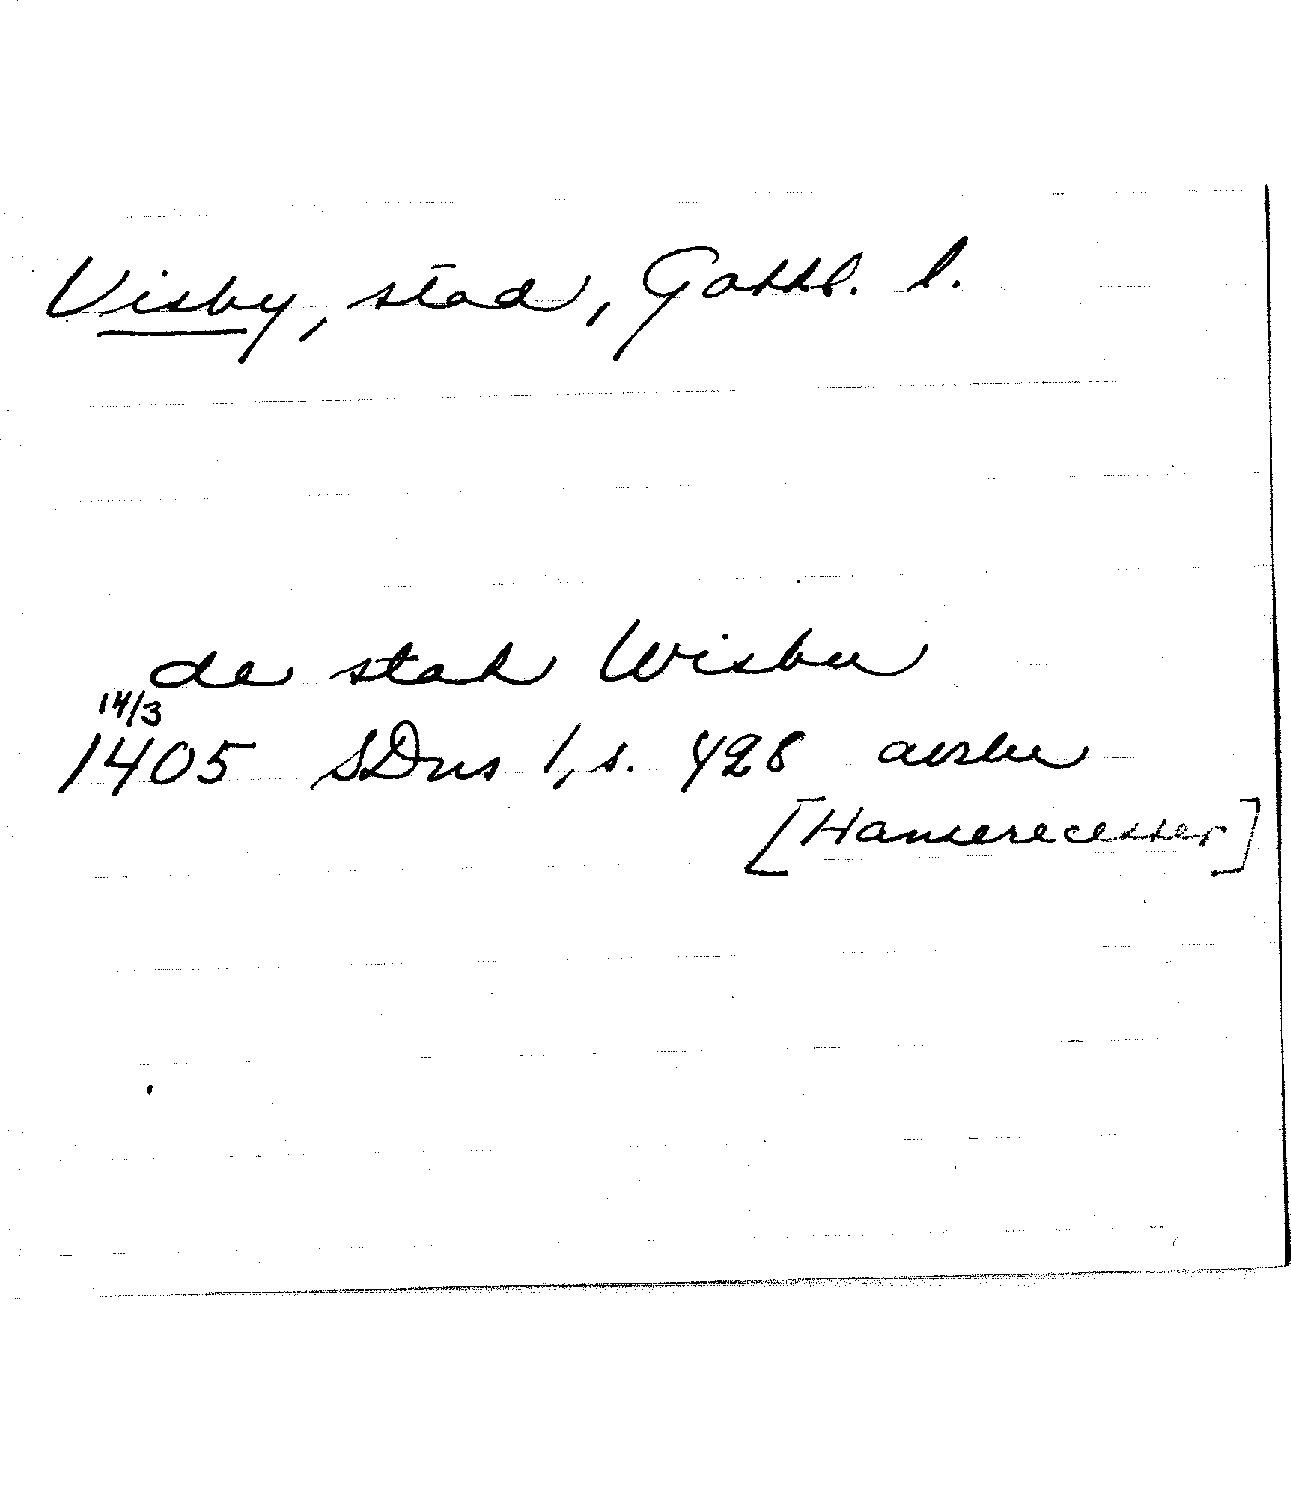 Visby, stad, Gottl. l.
de stat Wisbu
14/3
1405 SDns 1, s. 428 avskr
[Hanserecesser]